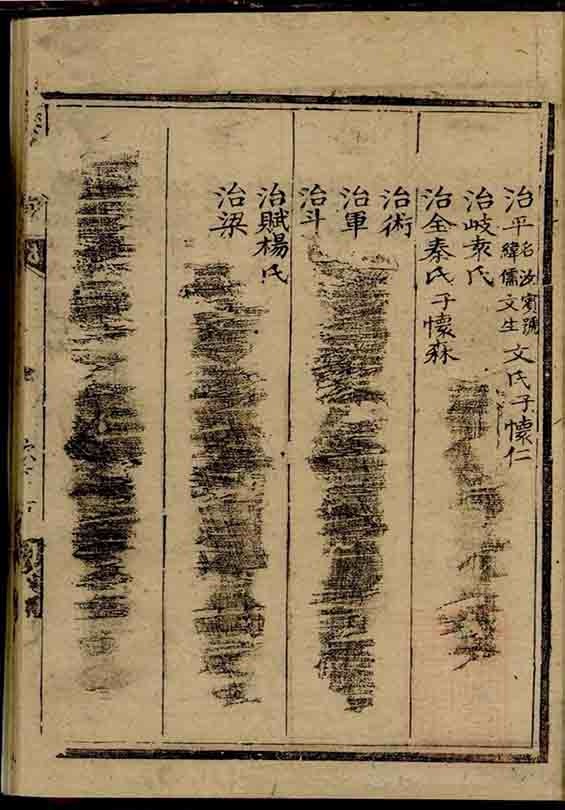 治平名汝賓號緯儒文生文氏子懷仁
治岐袁氏
治全秦氏子懷森
治術
治軍
治斗
治賦楊氏
治梁